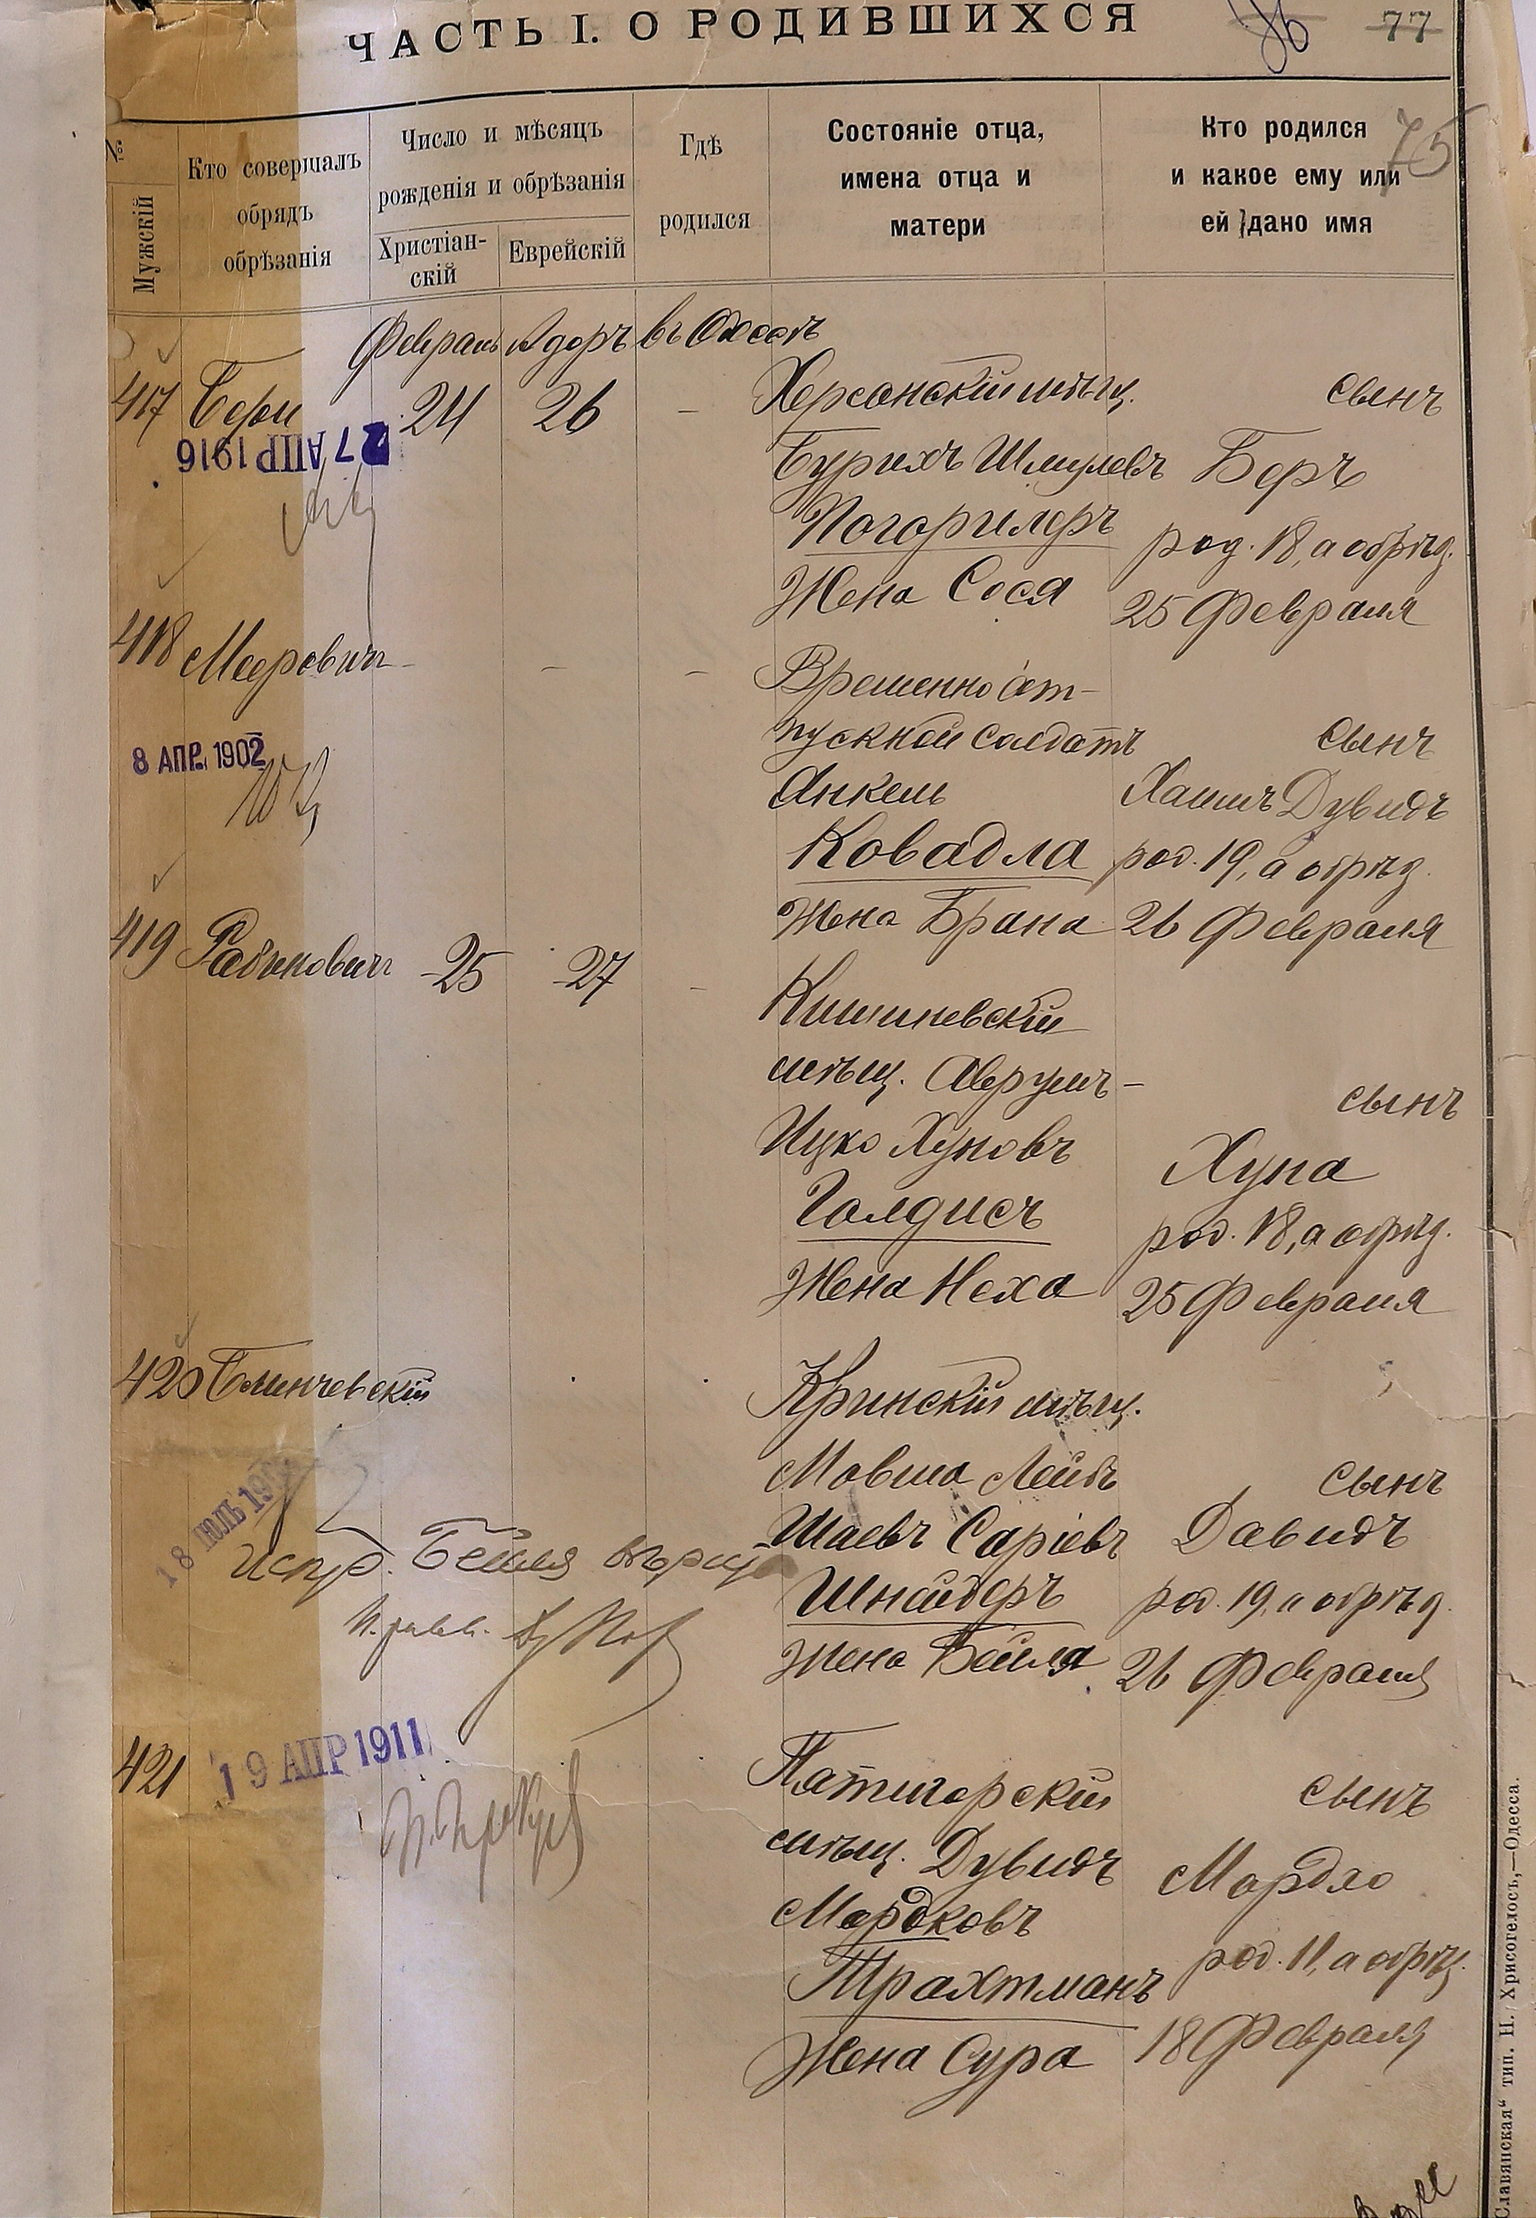 ЧАСТЬ I. О РОДИВШИХСЯ
77
75
№
Мужскій
Кто совершалъ
обрядъ
обрѣзанія
Число и мѣсяцъ
рожденія и обрѣзанія
Христіан-
скій
Еврейскій
Гдѣ
родился
Состояніе отца,
имена отца и
матери
Кто родился
и какое ему или
ей дано имя
Февраль Адаръ въ Одессѣ
417
24
26
-
Херсонскій мѣщ.
Бурихъ Шмулевъ
Погорилеръ
Жена Сося
сынъ
Беръ
род. 18, а обрѣз.
25 Февраля
27 АПР 1916
418 Мееровичъ
-
-
Временно от-
пускной солдатъ
Янкель
Ковадла
Жена Брана
сынъ
Хаимъ Дувидъ
род. 19, а обрѣз.
26 Февраля
8 АПР. 1902
419 Рабиновичъ
25
27
-
Кишиневскій
мѣщ. Аврумъ-
Ицко Хуновъ
Голдисъ
Жена Неха
сынъ
Хуна
род. 18, а обрѣз.
25 Февраля
420
Кринскій мѣщ.
Мовша Лейбъ
Шаевъ Саріевъ
Шнайдеръ
Жена Бейля
сынъ
Давидъ
род. 19, а обрѣз.
26 Февраля
18 ИЮЛЬ
Испр. Бейля вѣрно
421
19 АПР 1911
Пятигорскій
мѣщ. Дувидъ
Мордковъ
Трахтманъ
Жена Сура
сынъ
Мордко
род. 11, а обрѣз.
18 Февраля
Славянская“ тип. Н. Хрисогелосъ,—Одесса.